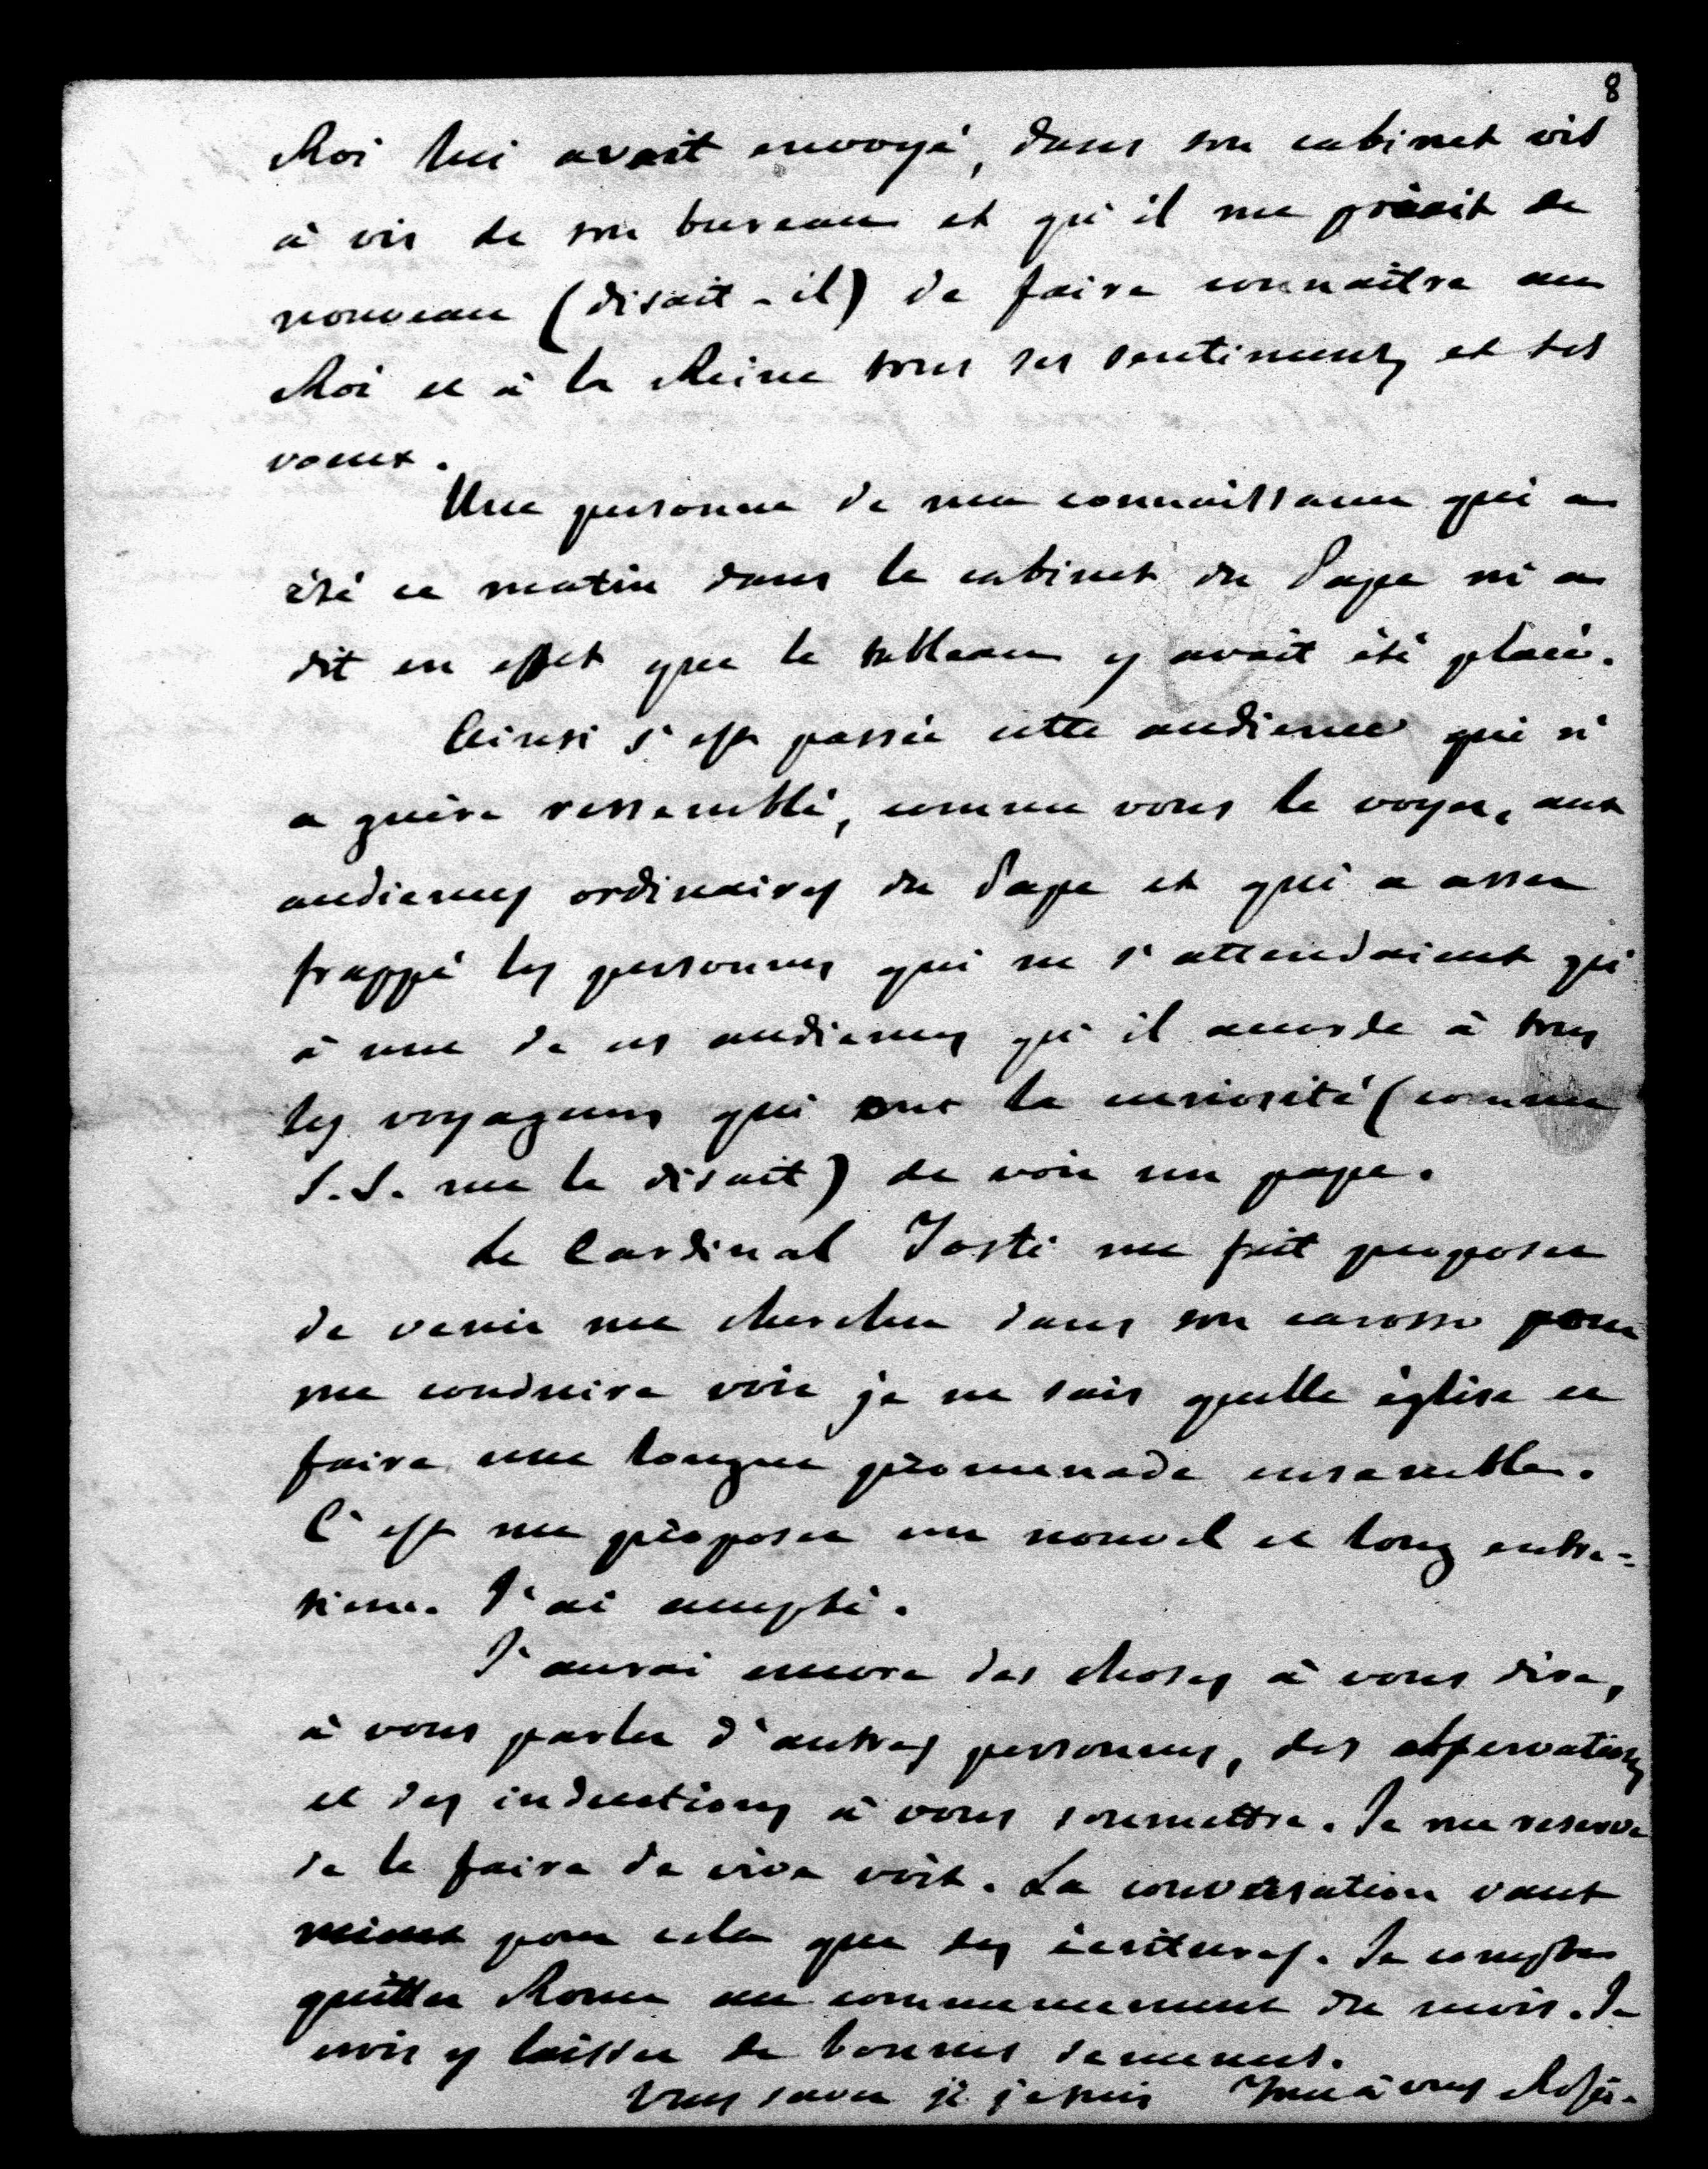 8
Roi lui avait envoyé, dans son cabinet vis
à vis de son bureau et qu'il me priait de
nouveau (disait-il) de faire connaître au
Roi et à la Reine tous ses sentiments et ses
voeux.
Une personne de ma connaissance qui a
été ce matin dans le cabinet du Pape m'a
dit en effet que le tableau y avait été placé.
Ainsi s'est passée cette audience qui n'
a guère ressemblé, comme vous le voyez, aux
audiences ordinaires du Pape et qui a assez
frappé les personnes qui ne s'attendaient qu'
à une de ces audiences qu'il accorde à tous
les voyageurs qui ont la curiosité (comme
S.S. me le disait) de voir un pape.
Le Cardinal Tosti me fait proposer
de venir me chercher dans son carosse pour
me conduire voir je ne sais quelle église et
faire une longue promenade ensemble.
C'est me proposer un nouvel et long entre=
tien. J'ai accepté.
J'aurai encore des choses à vous dire,
à vous parler d'autres personnes, des observations
et des inductions à vous soumettre. Je me reserve
de le faire de vive voix. La conversation vaut
mieux pour cela que les écritures. Je compte
quitter Rome au commencement du mois. Je
crois y laisser de bonnes semences.
Vous savez si je suis tout à vous